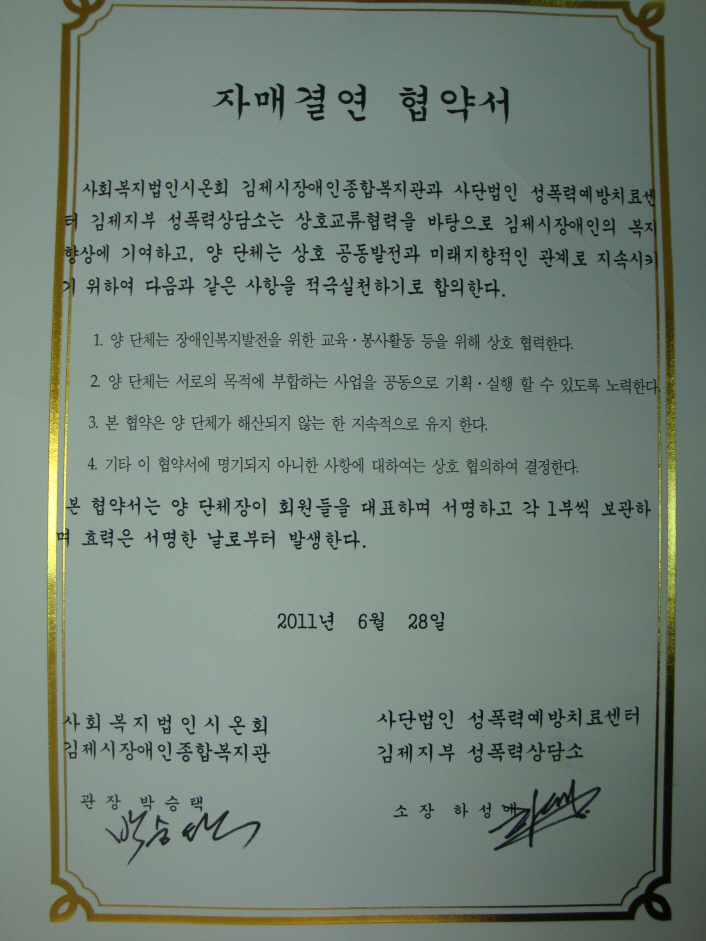 자매결연 협약서
사회복지법인시온회 김제시장애인종합복지관과 사단법인 성폭력예방치료센
터 김제지부 성폭력상담소는 상호교류협력을 바탕으로 김제시장애인의 복지
향상에 기여하고, 양 단체는 상호 공동발전과 미래지향적인 관계로 지속시키
기 위하여 다음과 같은 사항을 적극실천하기로 합의한다.
1. 양 단체는 장애인복지발전을 위한 교육·봉사활동 등을 위해 상호 협력한다.
2. 양 단체는 서로의 목적에 부합하는 사업을 공동으로 기획·실행 할 수 있도록 노력한다.
3. 본 협약은 양 단체가 해산되지 않는 한 지속적으로 유지 한다.
4. 기타 이 협약서에 명기되지 아니한 사항에 대하여는 상호 협의하여 결정한다.
본 협약서는 양 단체장이 회원들을 대표하며 서명하고 각 1부씩 보관하
며 효력은 서명한 날로부터 발생한다.
2011년 6월 28일
사회복지법인시온회
김제시장애인종합복지관
관장 박승택
박승택
사단법인 성폭력예방치료센터
김제지부 성폭력상담소
소장 하성애